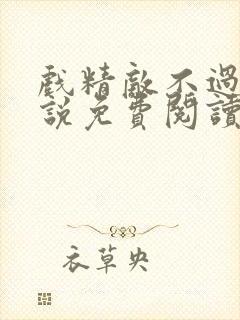 戲精敵不過
說免費閱讀
衣草央